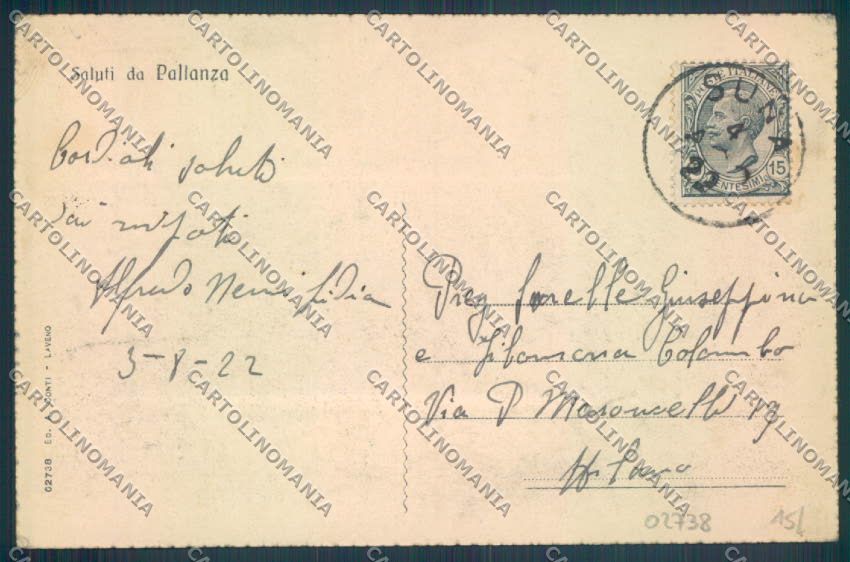 Saluti da Pallanza
Cordiali saluti
dai nipoti
Alfredo Lidia
3-8-22
02738 ED. CONTI - LAVENO
POSTE ITALIANE
CENTESIMI 15
SUNA
4
22
Preg Sorelle Giuseppina
e Filomena Colombo
Via P Maroncelli 19
Milano
02738
15/
CARTOLINOMANIA